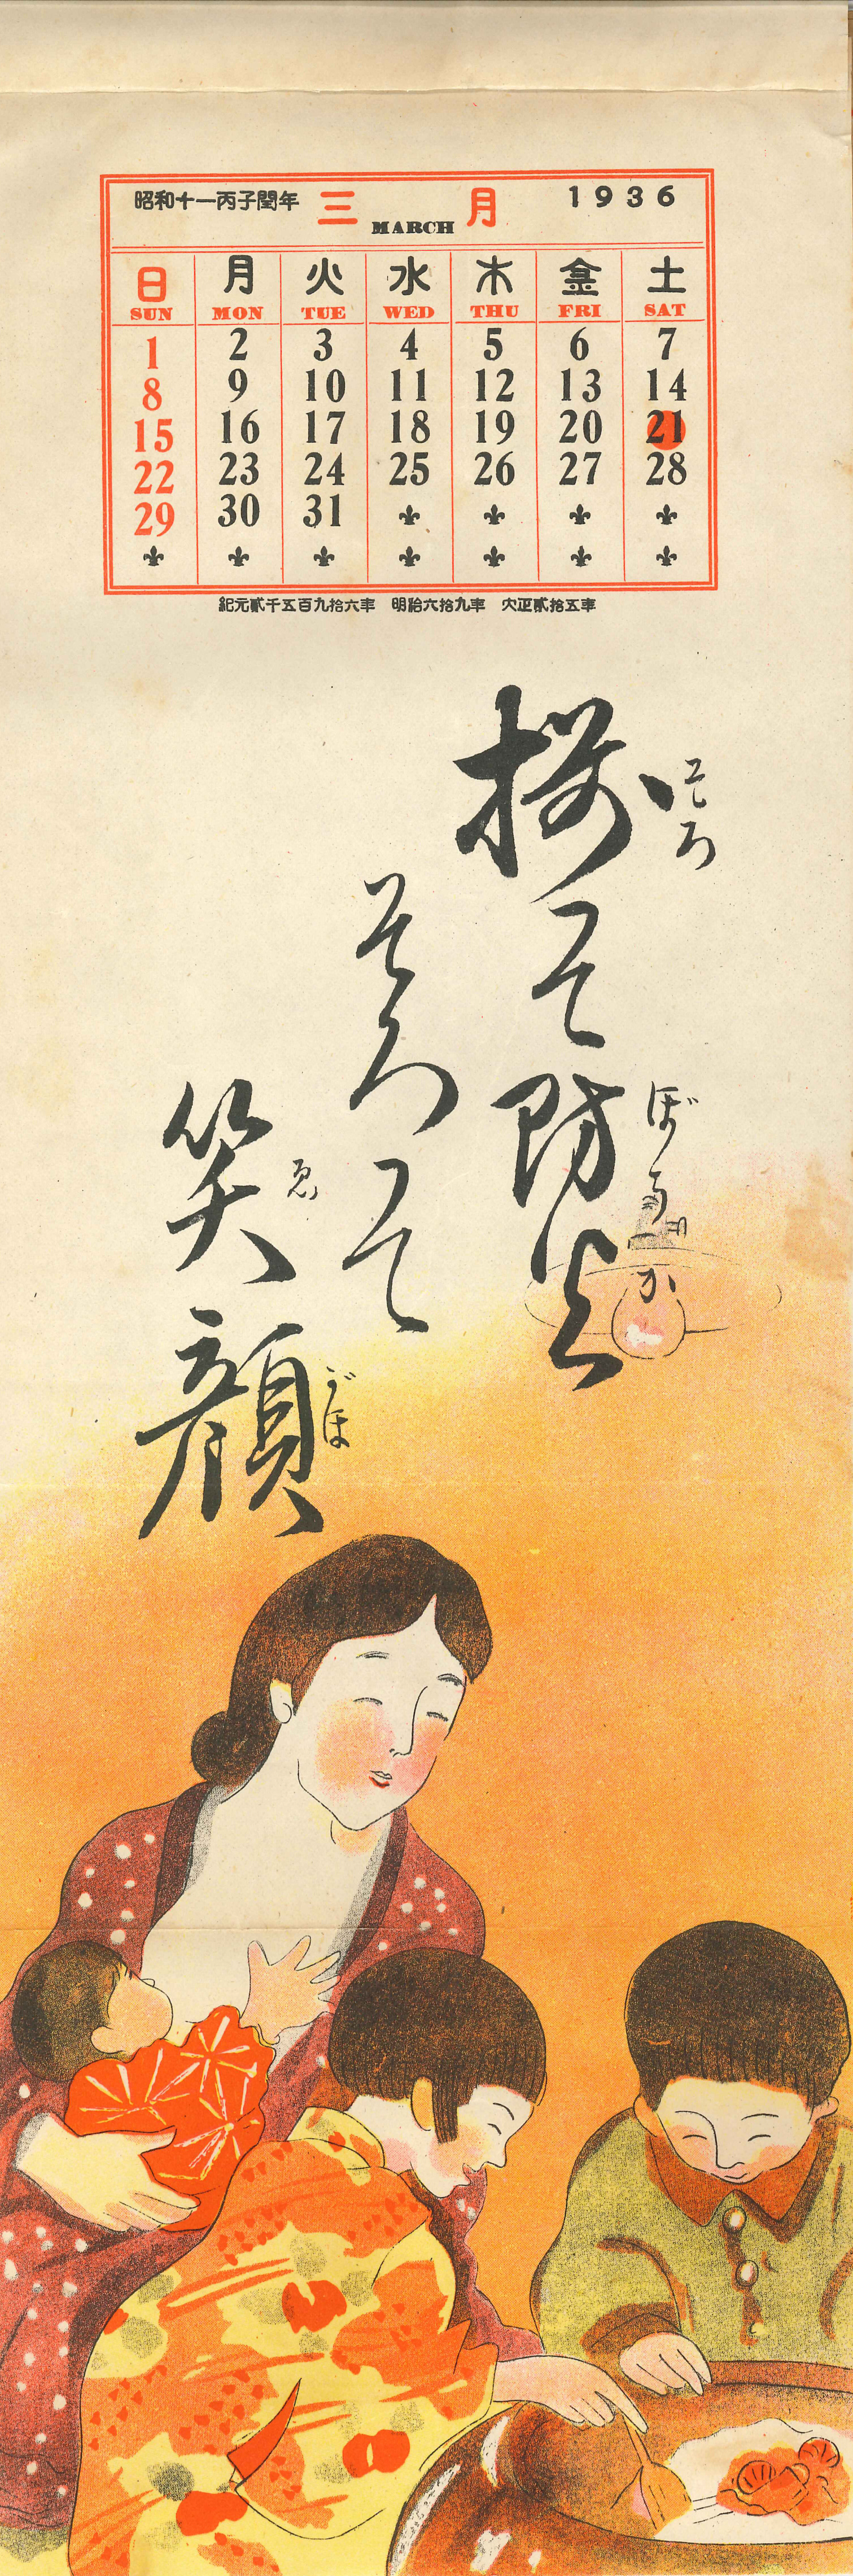 昭和十一丙子閏年 三月 1936
MARCH
日 月 火 水 木 金 土
SUN MON TUE WED THU FRI SAT
1 2 3 4 5 6 7
8 9 10 11 12 13 14
15 16 17 18 19 20 21
22 23 24 25 26 27 28
29 30 31
紀元貳千五百九拾六年 明治六拾九年 大正貳拾五年
そろ
揃つて防火
そろつて
ゑがほ
笑顔